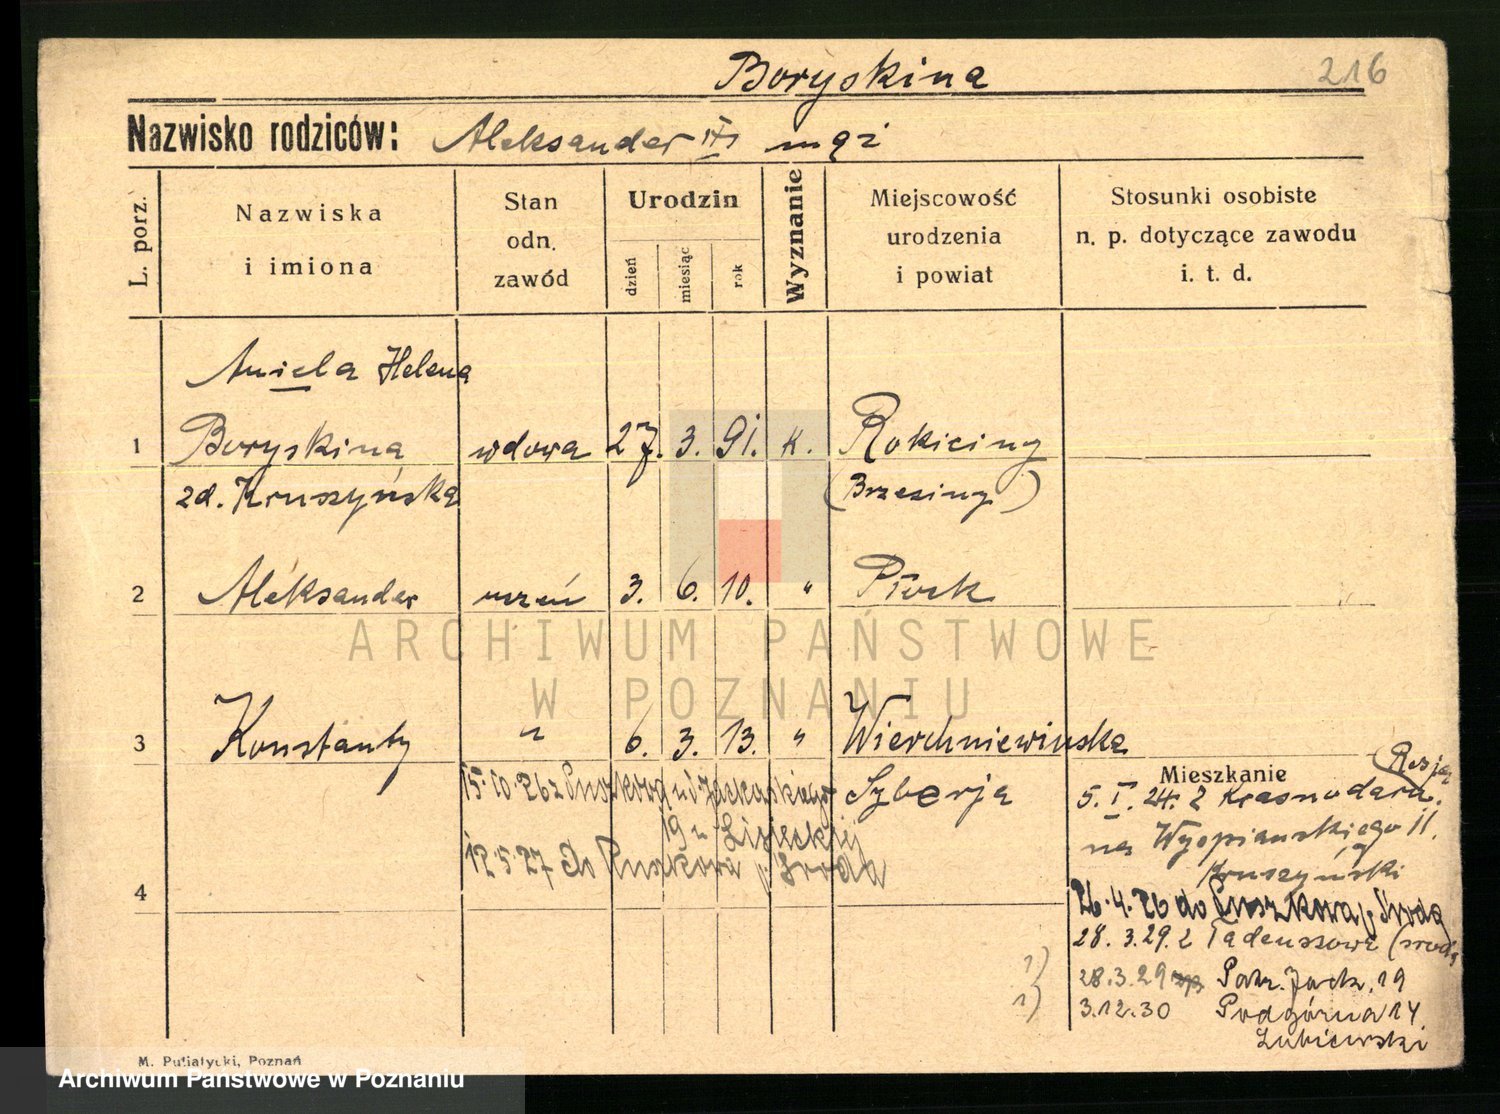 Boryskina 216
Nazwisko rodziców: Aleksander mąż
L. porz.
Nazwiska i imiona
Stan odn. zawód
Urodzin
dzień miesiąc rok
Wyznanie
Miejscowość urodzenia i powiat
Stosunki osobiste n. p. dotyczące zawodu i. t. d.
Aniela Helena
1 Boryskina wdowa 27. 3. 91. k. Rokiciny
zd. Kruszyńska (Brzeziny)
2 Aleksander uczeń 3. 6. 10. " Płock
ARCHIWUM PAŃSTWOWE
W POZNANIU
3 Konstanty " 6. 3. 13. " Wierchniewinska
Syberja
15.10.26 z
19 u Lisieckiej
12.5.27 do Ruszkowa p. Środa
4
Mieszkanie (Rosja
5. I. 24. z Krasnodaru
na Wyspiańskiego 11.
Kruszyński
26.4.26 do p. Środa
28. 3. 29. z Tadeuszowa
1) 28.3.29 Patr. Jack. 19
1) 3.12.30 Podgórna 14
Lubiewski
M. Putiatycki, Poznań
Archiwum Państwowe w Poznaniu